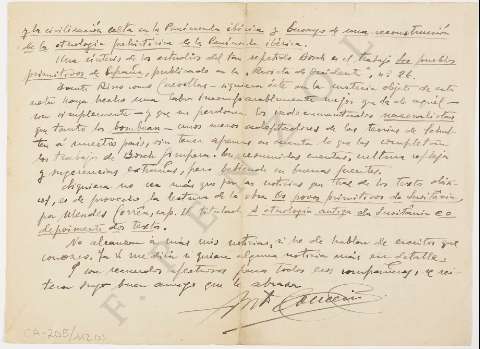 y la civilización celta en la Península ibérica y Ensayo de una reconstrucción
de la etnología prehistórica de la Península ibérica.
Una síntesis de los estudios del tan repetido Bosch es el trabajo Los pueblos
primitivos de España, publicado en la "Revista de Occidente", nº 26.
Tanto Risco como Cuevillas – siquiera éste en la materia objeto de esta
nota haya hecho una labor incomparablemente mejor que la de aquél –
son simplemente – y que me perdonen los galleguistas nacionalistas
que tanto los bombean – unos meros adaptadores de las teorías de
a nuestro país, sin tener apenas en cuenta lo que las completan
los trabajos de Bosch Gimpera. En resumidas cuentas, cultura refleja
y sugerencias extrañas, pero bebiendo en buenas fuentes.
Siquiera no sea más que por las noticias que trae de los textos clási-
cos, es de provecho la lectura de la obra Os povos primitivos da Lusitania,
por Mendes Corrêa, cap. II titulado A etnologia antiga da Lusitania e o
depoimento dos textos.
No alcanzan a más mis noticias, si he de hablar de escritos que
conozco. Ya V. me dirá si quiere alguna noticia más en detalle.
Y con recuerdos afectivos para todos esos compañeros, se rei-
tera suyo buen amigo que le abraza
CA-205/112 (2)